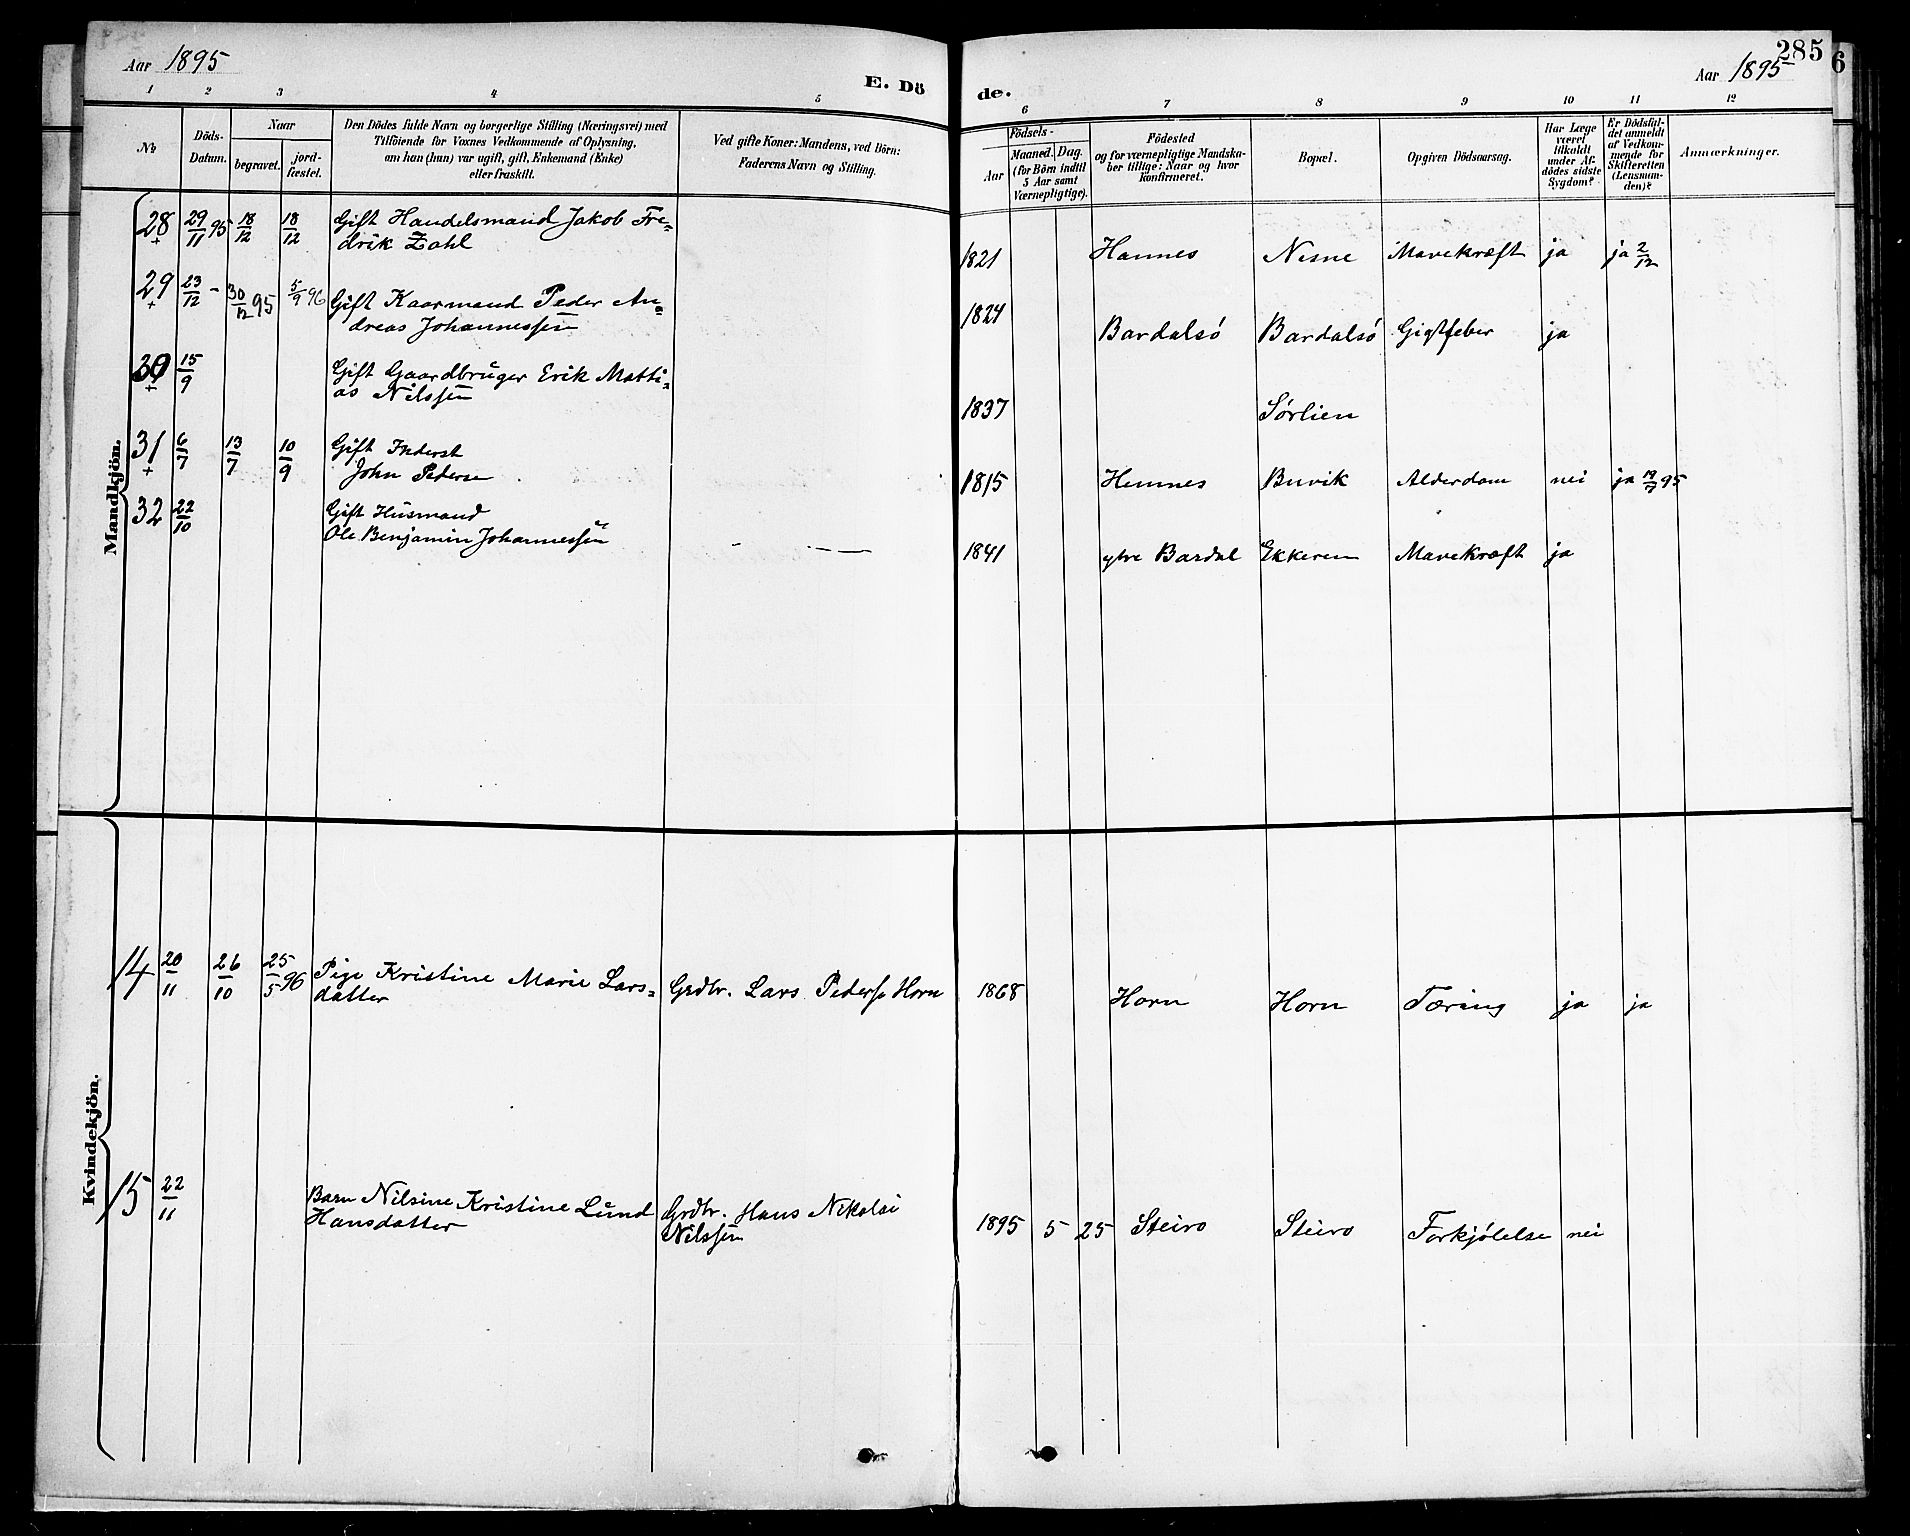 285
6
Aar 1895
E. Dö
de.
Aar 1895
1 2 3 4 5 6 7 8 9 10 11 12
No
Döds-
Datum.
Naar
begravet.
jord-
fæstet.
Den Dödes fulde Navn og borgerlige Stilling (Næringsvei) med
Tilföiende for Voxnes Vedkommende af Oplysning,
om han (hun) var ugift, gift, Enkemand (Enke)
eller fraskilt.
Ved gifte Koner: Mandens, ved Börn:
Faderens Navn og Stilling.
Födsels-
Aar
Maaned.
Dag.
(for Börn indtil
5 Aar samt
Værnepligtige).
Födested
og for værnepligtige Mandska-
ber tillige: Naar og hvor
konfirmeret.
Bopæl.
Opgiven Dödsaarsag.
Har Læge
været
tilkaldt
under Af-
dödes sidste
Sygdom?
Er Dödsfal-
det anmeldt
af Vedkom-
mende for
Skifteretten
(Lensman-
den)?
Anmærkninger.
Mandkjön.
28 + 29/11 95 18/12 18/12 Gift Handelsmand Jakob Fre-
drik Zahl 1821 Hannes Nesne Mavekræft ja ja 2/12
29 + 23/12 - 30/12 95 5/9 96 Gift Kaarmand Peder An-
dreas Johannessen 1824 Bardalsö Bardalsö Gigtfeber ja
30 + 15/9 Gift Gaardbruger Erik Matti-
as Nilssen 1837 Sørlien
31 + 6/7 13/7 10/9 Gift Inderst
John Peders 1815 Hemnes Buvik Alderdom nei ja 19/7 95
32 22/10 Gift Husmand
Ole Benjamin Johannessen - - — 1841 ytre Bardal Ekkeren Mavekræft ja
Kvindekjön.
14 20/11 26/10 25/5 96 Pige Kristine Marie Lars-
datter Grdbr. Lars Peders Horn 1868 Horn Horn Tæring ja ja
15 22/11 Barn Nilsine Kristine Lund
Hansdatter Grdbr. Hans Nikolai
Nilssen 1895 5 25 Steiro Steiro Forkjölelse nei